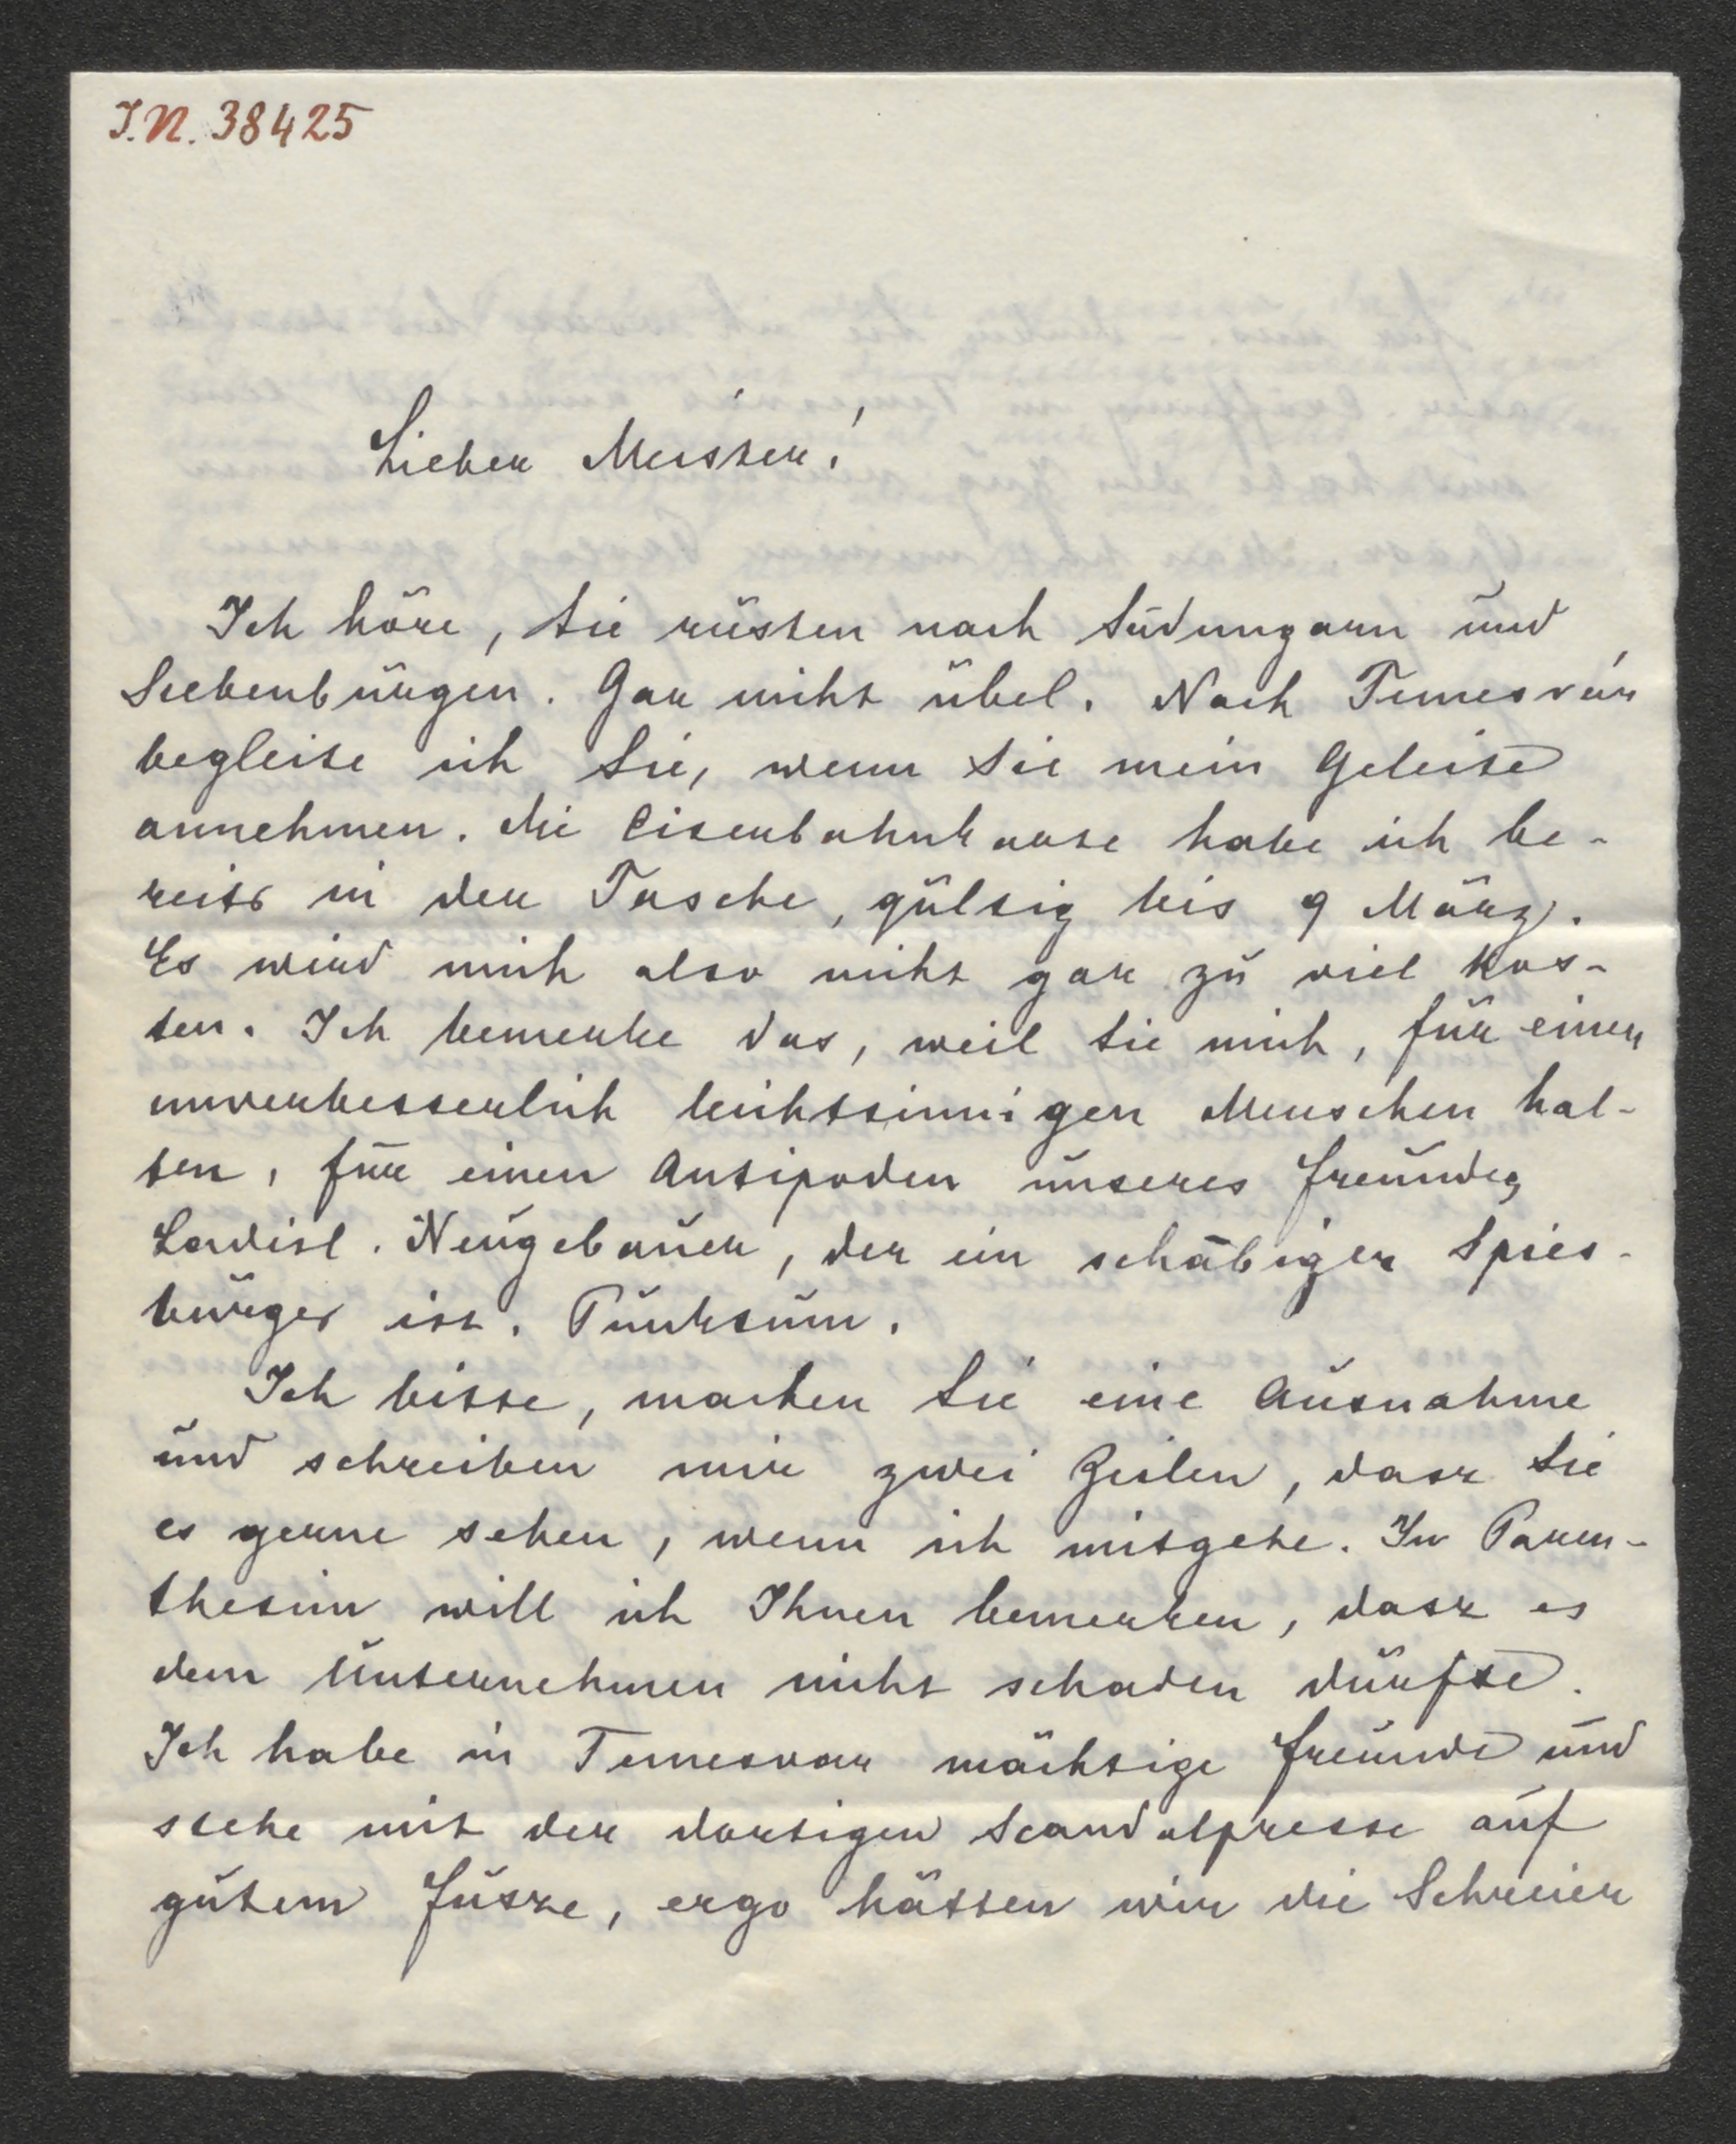 I.N. 38425
Lieber Meister!
Ich höre, Sie rüsten nach Südungarn und
Siebenbürgen. Gar nicht übel. Nach Temesvár
begleite ich Sie, wenn Sie mein Geleite
annehmen. Die Eisenbahnkarte habe ich be-
reits in der Tasche, gültig bis 9 März.
Es wird mich also nicht gar zu viel kos-
ten. Ich bemerke das, weil Sie mich, für einen
unverbesserlich leichtsinnigen Menschen hal-
ten, für einen Antipoden unseres Freundes
Ladisl. Neugebauer, der ein schäbiger Spies-
bürger ist. Punktum.
Ich bitte, machen Sie eine Ausnahme
und schreiben mir zwei Zeilen, dasz Sie
es gerne sehen, wenn ich mitgehe. In Paren-
thesim will ich Ihnen bemerken, dasz es
dem Unternehmen nicht schaden dürfte.
Ich habe in Temesvar mächtige Freunde und
stehe mit der dortigen Scandalpresse auf
gutem Fusze, ergo hätten wir die Schreier